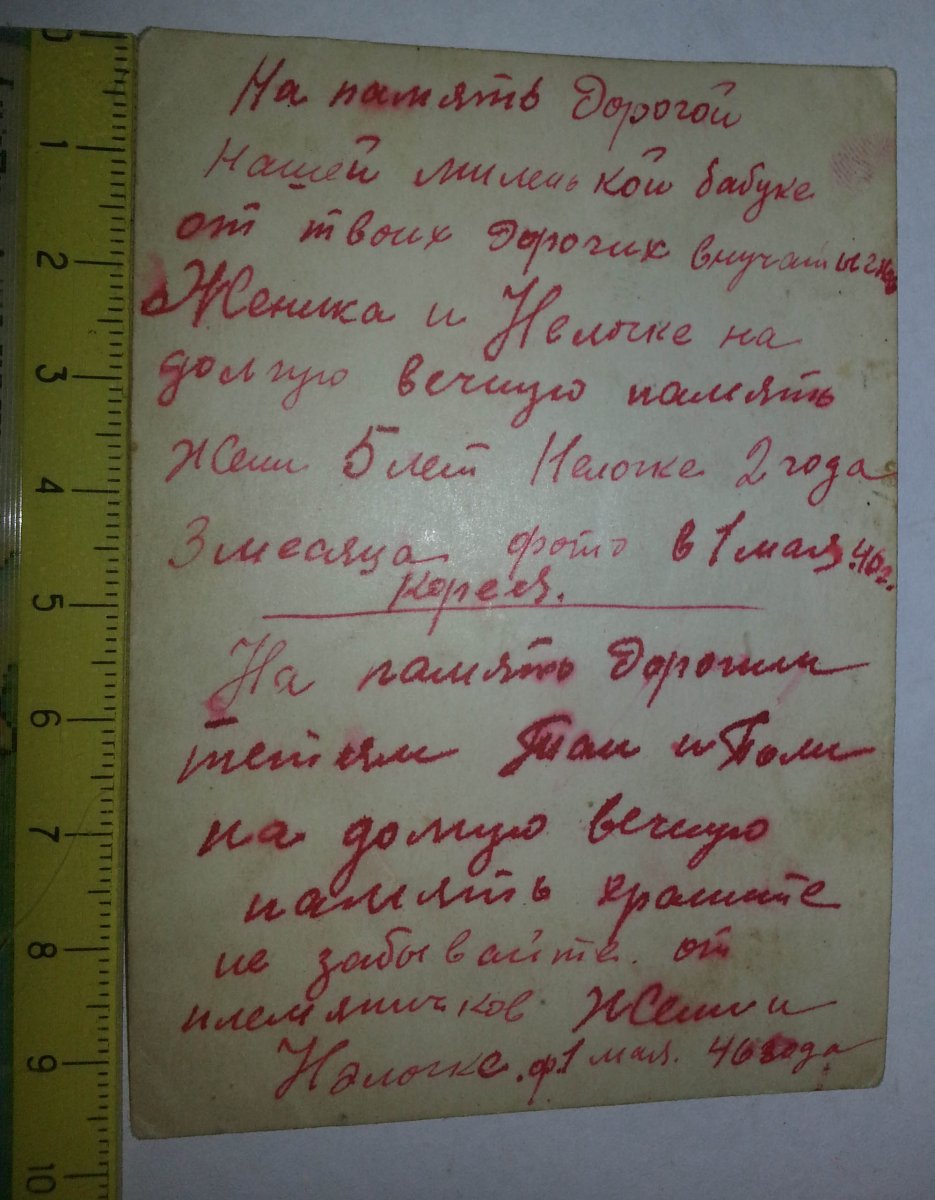 На память Дорогой
Нашей миленькой бабуке
от твоих Дорогих внучат
Женика и Нелочке на
долгую вечную память
Жени 5 лет Нелочке 2 года
3 месяца фото в 1 мая 46 г.
Корея.
На память Дорогим
тетям Таи и Поли
на долгую вечную
память храните
не забывайте. от
племяничков Жени и
Нелочке. ф. 1 мая. 46 года
0
1
2
3
4
5
6
7
8
9
10